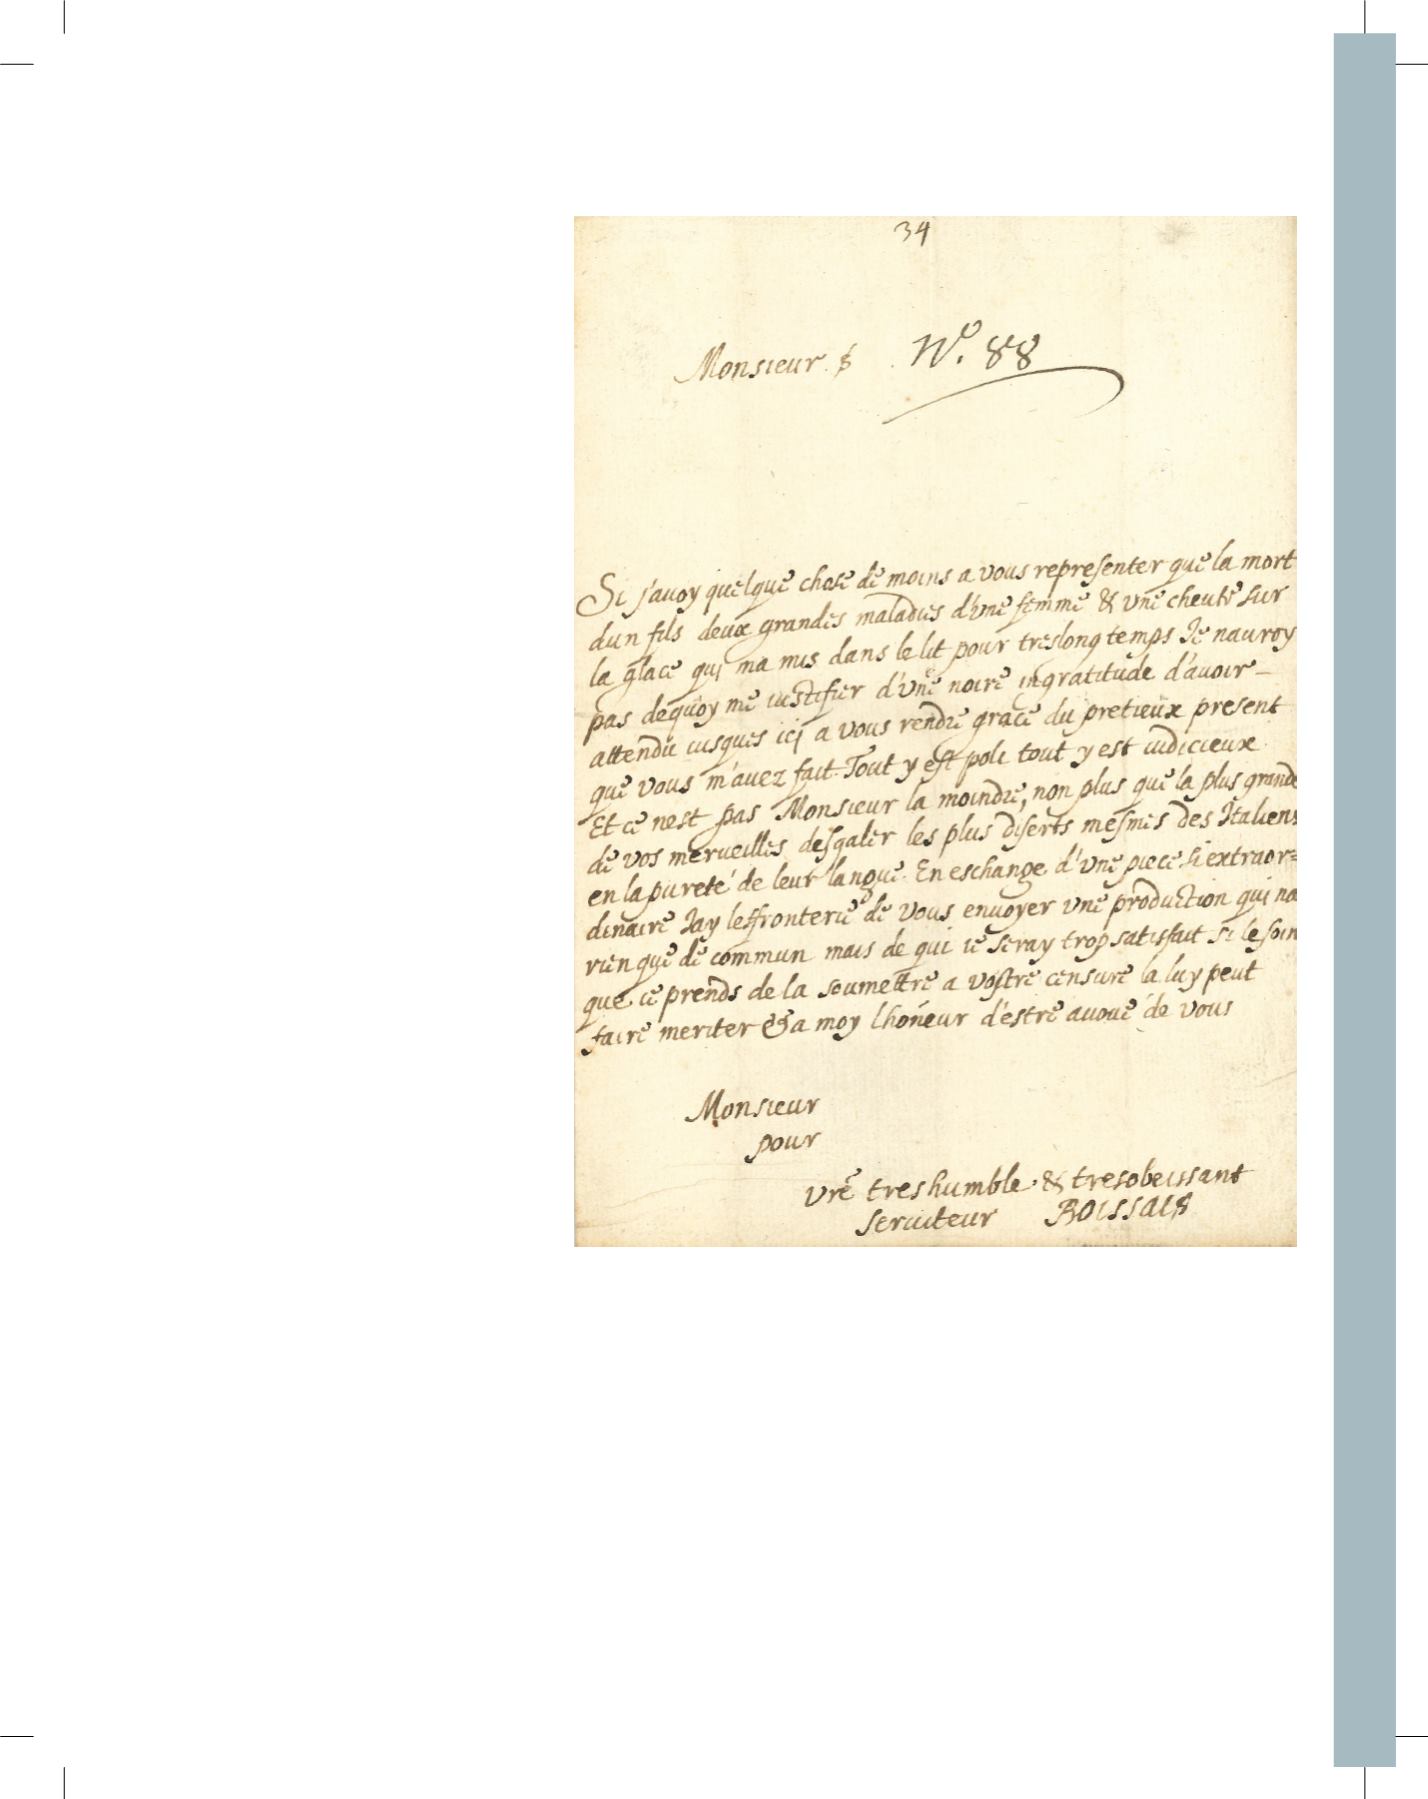 34
Monsieur $ N.º 88
Si j'auoy quelque chose de moins a vous representer que la mort
dun fils deux grandes maladies d'vne femme & vne cheute sur
la glace qui ma mis dans le lit pour treslong temps Je nauroy
pas dequoy me iustifier d'vne noire ingratitude d'auoir
attendu iusques icj a vous rendre grace du pretieux present
que vous m'auez fait. Tout y est poli tout y est iudicieux
Et ce nest pas Monsieur la moindre, non plus que la plus grande
de vos merueilles desgaler les plus diserts mesmes des Italiens
en la pureté de leur langue. En eschange d'vne piece si extraor=
dinaire Jay leffronterie de vous enuoyer vne production qui na
rien que de commun mais de qui ie seray trop satisfait si le soin
que ie prends de la soumettre a vostre censure la luy peut
faire meriter & a moy lhoneur d'estre auoué de vous
Monsieur
pour
vre treshumble & tresobeissant
seruiteur BOISSAIS